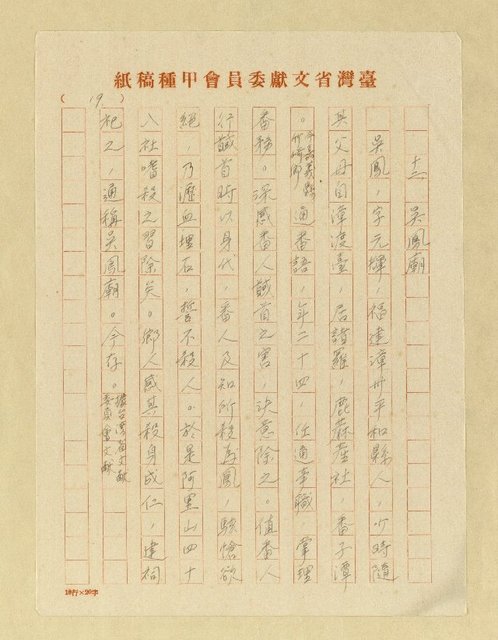 臺灣省文獻委員會甲種稿紙
(19)
十二、吳鳳廟
吳鳳,字元輝,福建漳州平和縣人,少時隨
其父母自漳渡臺,居諸羅,鹿蔴產社,番子潭
。今嘉義縣竹崎鄉 通番語,年二十四,任通事職 掌理
番務。深感番人馘首之害,決意除之。值番人
行馘首時以身代,番人及知所殺為鳳,駭愴欲
絕,乃瀝血埋石,誓不殺人。於是阿里山四十
八社嗜殺之習除矣。鄉人感其殺身成仁,建祠
祀之,通稱吳鳳廟。今存。據台灣省文獻委員會文獻
10行×20字